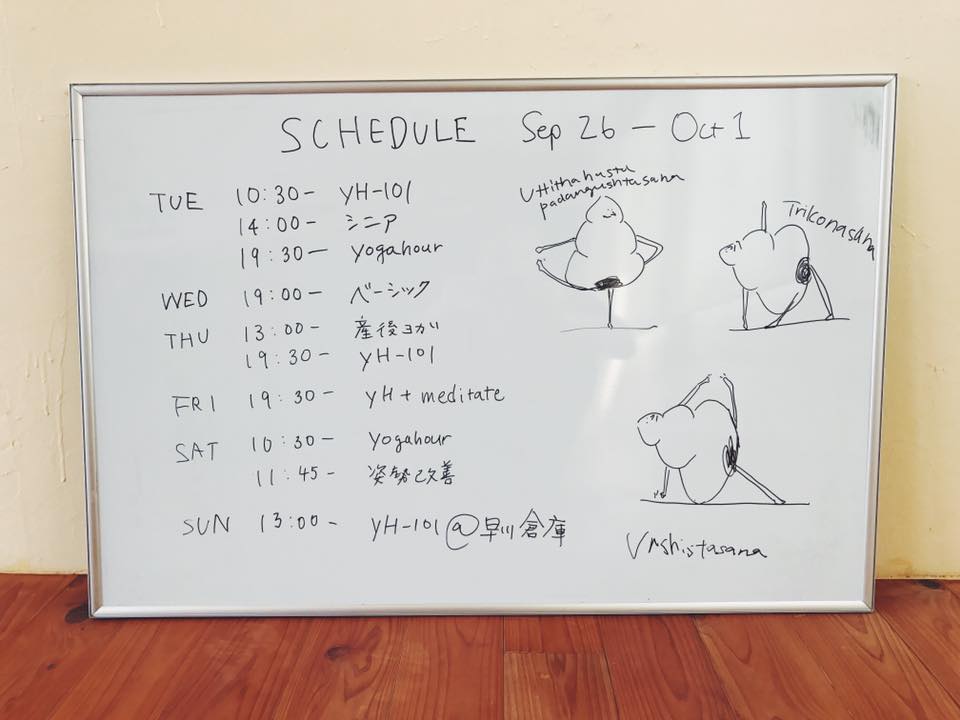 SCHEDULE Sep 26 - Oct 1
TUE 10:30- YH-101
14:00- シニア
19:30- Yogahour
WED 19:00- ベーシック
THU 13:00- 産後ヨガ
19:30- YH-101
FRI 19:30- YH + meditate
SAT 10:30- Yogahour
11:45- 姿勢改善
SUN 13:00- YH-101@早川倉庫
Uttithahasta
padangushtasana
Trikonasana
Vrshistasana